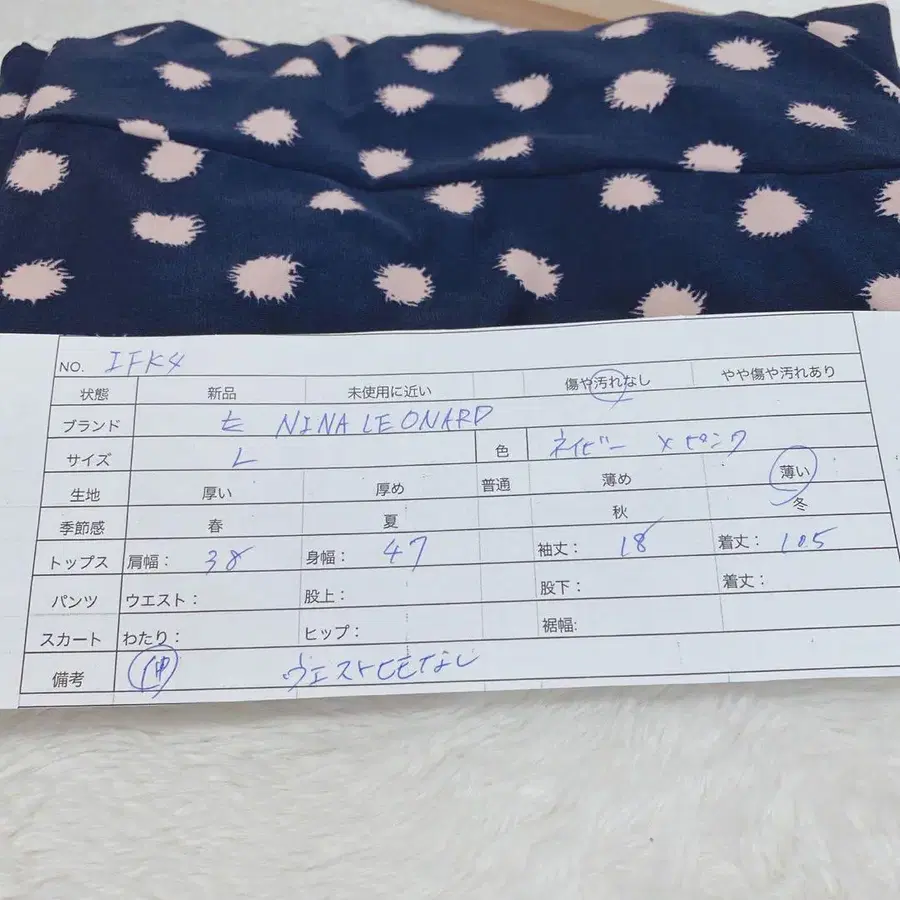 NO. IFK4
状態 新品 未使用に近い 傷や汚れなし やや傷や汚れあり
ブランド NINA LEONARD
サイズ L 色 ネイビー × ピンク
生地 厚い 厚め 普通 薄め 薄い
季節感 春 夏 秋 冬
トップス 肩幅: 38 身幅: 47 袖丈: 18 着丈: 105
パンツ ウエスト: 股上: 股下: 着丈:
スカート わたり: ヒップ: 裾幅:
備考 伸 ウエストヒモなし